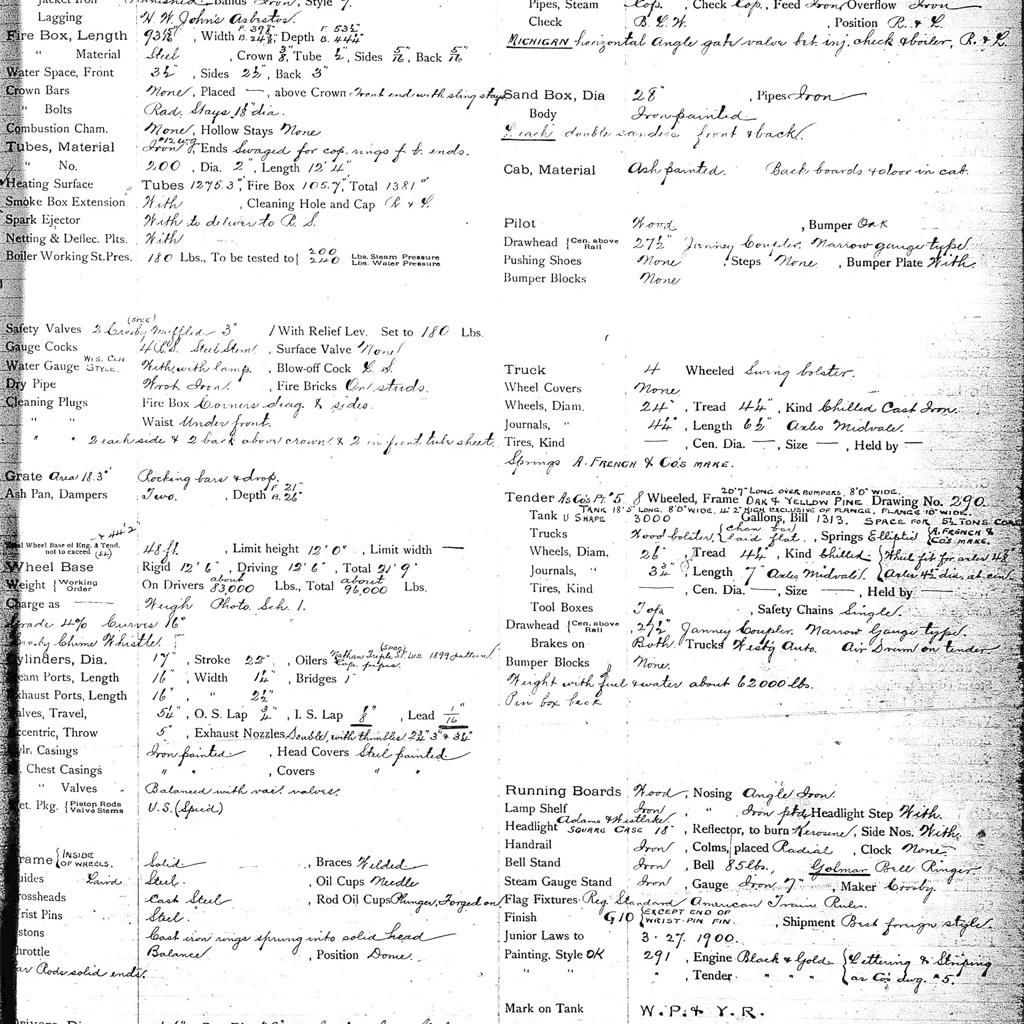 Lagging H. W. Johns Asbestos.
Fire Box, Length 93 , Width F. 39 B. 24 , Depth F. 53½" B. 44
" Material Steel , Crown 3/8", Tube ½", Sides 5/16", Back 5/16"
Water Space, Front 3½" , Sides 2½" , Back 3"
Crown Bars None , Placed — , above Crown Front end with sling stays
" Bolts Rad. Stays dia.
Combustion Cham. None , Hollow Stays None
Tubes, Material Iron , Ends Swaged for cop. rings f. b. ends.
" No. 200 , Dia. 2" , Length 12' 4"
Heating Surface Tubes 1275.3 , Fire Box 105.7 , Total 1381
Smoke Box Extension With , Cleaning Hole and Cap R & L
Spark Ejector With to deliver to R. S.
Netting & Deflec. Plts. With
Boiler Working St. Pres. 180 Lbs., To be tested to { 200 Lbs. Steam Pressure 240 Lbs. Water Pressure
Safety Valves 2 Crosby (spec) Muffled 3" 1 With Relief Lev. Set to 180 Lbs.
Gauge Cocks 4 Steel Stem , Surface Valve None
Water Gauge W. & Cen. Style. With, with lamp. , Blow-off Cock L. S.
Dry Pipe Wrot Iron. , Fire Bricks On studs.
Cleaning Plugs Fire Box Corners diag. & sides.
" " Waist Under front.
" " 2 each side & 2 back above crown & 2 in front tube sheet.
Grate Area 18.3 Rocking bars & drop.
Ash Pan, Dampers Two. , Depth F. 21" B. 26"
Total Wheel Base of Eng. & Tend. not to exceed 48 ft. , Limit height 12' 0" , Limit width —
Wheel Base Rigid 12' 6" , Driving 12' 6" , Total 21' 9"
Weight { Working Order On Drivers about 83,000 Lbs., Total about 96,000 Lbs.
Charge as — Weigh Photo. Sch. 1.
Grade 4% Curves 16°
Crosby Chime Whistle.
Cylinders, Dia. 17" , Stroke 22" , Oilers Nathan Triple (spec) 1899 pattern Cop. pipes.
Steam Ports, Length 16" , Width 1¼" , Bridges 1"
Exhaust Ports, Length 16" , " 2½"
Valves, Travel, 5¼" , O. S. Lap ¾" , I. S. Lap 1/8" , Lead 1/16"
Eccentric, Throw 5" , Exhaust Nozzles Double, with thimbles 2¾" 3" & 3¼"
Cylr. Casings Iron painted , Head Covers Steel painted
St. Chest Casings " " , Covers " "
" Valves Balanced with vac. valves.
Met. Pkg. { Piston Rods Valve Stems U.S. (Spec'd)
Frame { INSIDE OF WHEELS. Solid , Braces Welded
Guides Laird Steel. , Oil Cups Needle
Crossheads Cast Steel , Rod Oil Cups Plunger, Forged on
Wrist Pins Steel.
Pistons Cast iron rings sprung into solid head
Throttle Balance , Position Dome.
Rods solid ends.
Pipes, Steam Cop. , Check Cop., Feed Iron, Overflow Iron
Check B. L. W. , Position R. & L.
MICHIGAN horizontal Angle gate valve bet. inj. check & boiler, R. & L.
Sand Box, Dia 28" , Pipes Iron
Body Iron painted
Leach double sanders front & back.
Cab, Material Ash painted. Back boards & door in cab.
Pilot Wood , Bumper Oak
Drawhead { Cen. above Rail 27½" Janney Coupler. Narrow gauge type
Pushing Shoes None , Steps None , Bumper Plate With.
Bumper Blocks None
Truck 4 Wheeled Swing bolster.
Wheel Covers None
Wheels, Diam. 24" , Tread 4¼" , Kind Chilled Cast Iron.
Journals, " 4¼" , Length 6½" Axles Midvale.
Tires, Kind — , Cen. Dia. — , Size — , Held by —
Springs A. FRENCH & CO'S MAKE.
Tender As Co's Pt. #5 8 Wheeled, Frame 20'7" LONG OVER BUMPERS, 8'0" WIDE. OAK & YELLOW PINE Drawing No. 290
TANK 18'5" LONG, 8'0" WIDE, 4'2" HIGH EXCLUSIVE OF FLANGE, FLANGE 10" WIDE.
Tank U SHAPE 3000 Gallons, Bill 1313. SPACE FOR 5½ TONS COAL
Trucks Wood bolster, { chan. bar laid flat. , Springs Elliptic { A. FRENCH & CO'S MAKE.
Wheels, Diam. 26" , Tread 4¼" , Kind Chilled { Wheel fit for axles 4
Journals, " 3¾" , Length 7" Axles Midvale. { Axles 4½ dia. at cen.
Tires, Kind — , Cen. Dia. — , Size — , Held by —
Tool Boxes Top , Safety Chains Single.
Drawhead { Cen. above Rail 27½" Janney Coupler. Narrow Gauge type.
Brakes on Both Trucks West'g Auto. Air Drum on tender
Bumper Blocks None.
Weight with fuel & water about 62000 lbs.
Pin box back
Running Boards Wood , Nosing Angle Iron.
Lamp Shelf Iron " Iron ptd. Headlight Step With.
Headlight Adams & Westlake. SQUARE CASE 18" , Reflector, to burn Kerosene , Side Nos. With.
Handrail Iron , Colms, placed Radial , Clock None
Bell Stand Iron , Bell 85 lbs. , Golmar Bell Ringer.
Steam Gauge Stand Iron , Gauge Iron 7" , Maker Crosby.
Flag Fixtures Reg. Standard American Train Rules.
Finish G10 { EXCEPT END OF WRIST PIN FIN. , Shipment Best foreign style.
Junior Laws to 3. 27. 1900.
Painting, Style OK 291 , Engine Black & Gold { Lettering & Striping
" " , Tender " " " { as Co's dwg. #5.
Mark on Tank W. P. & Y. R.